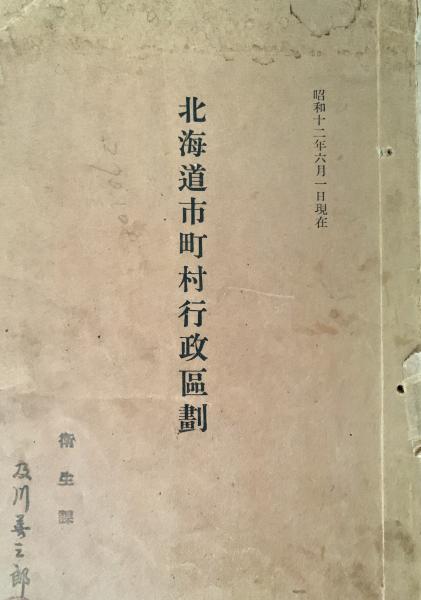 昭和十二年六月一日現在
北海道市町村行政區劃
衛生課
及川善三郎